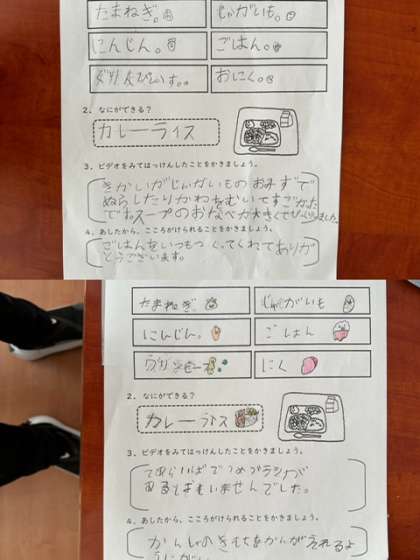 たまねぎ。
じゃがいも。
にんじん。
ごはん。
おにく。
2. なにができる?
カレーライス
3. ビデオをみてはっけんしたことをかきましょう。
きかいがじゃないものおみずで
ぬらしたりかわをむいてすごかった
ですスープのおなべが大きくてびっくりしました。
4. あしたから、こころがけられることをかきましょう。
ごはんをいつもつくってくれてありが
とうございます。
たまねぎ
じゃがいも
にんじん。
ごはん
にく
2. なにができる?
カレーライス
3. ビデオをみてはっけんしたことをかきましょう。
てあらいばでつめブラシが
あるとおもいませんでした。
4. あしたから、こころがけられることをかきましょう。
かんしゃのきもちをかんがえれるよ